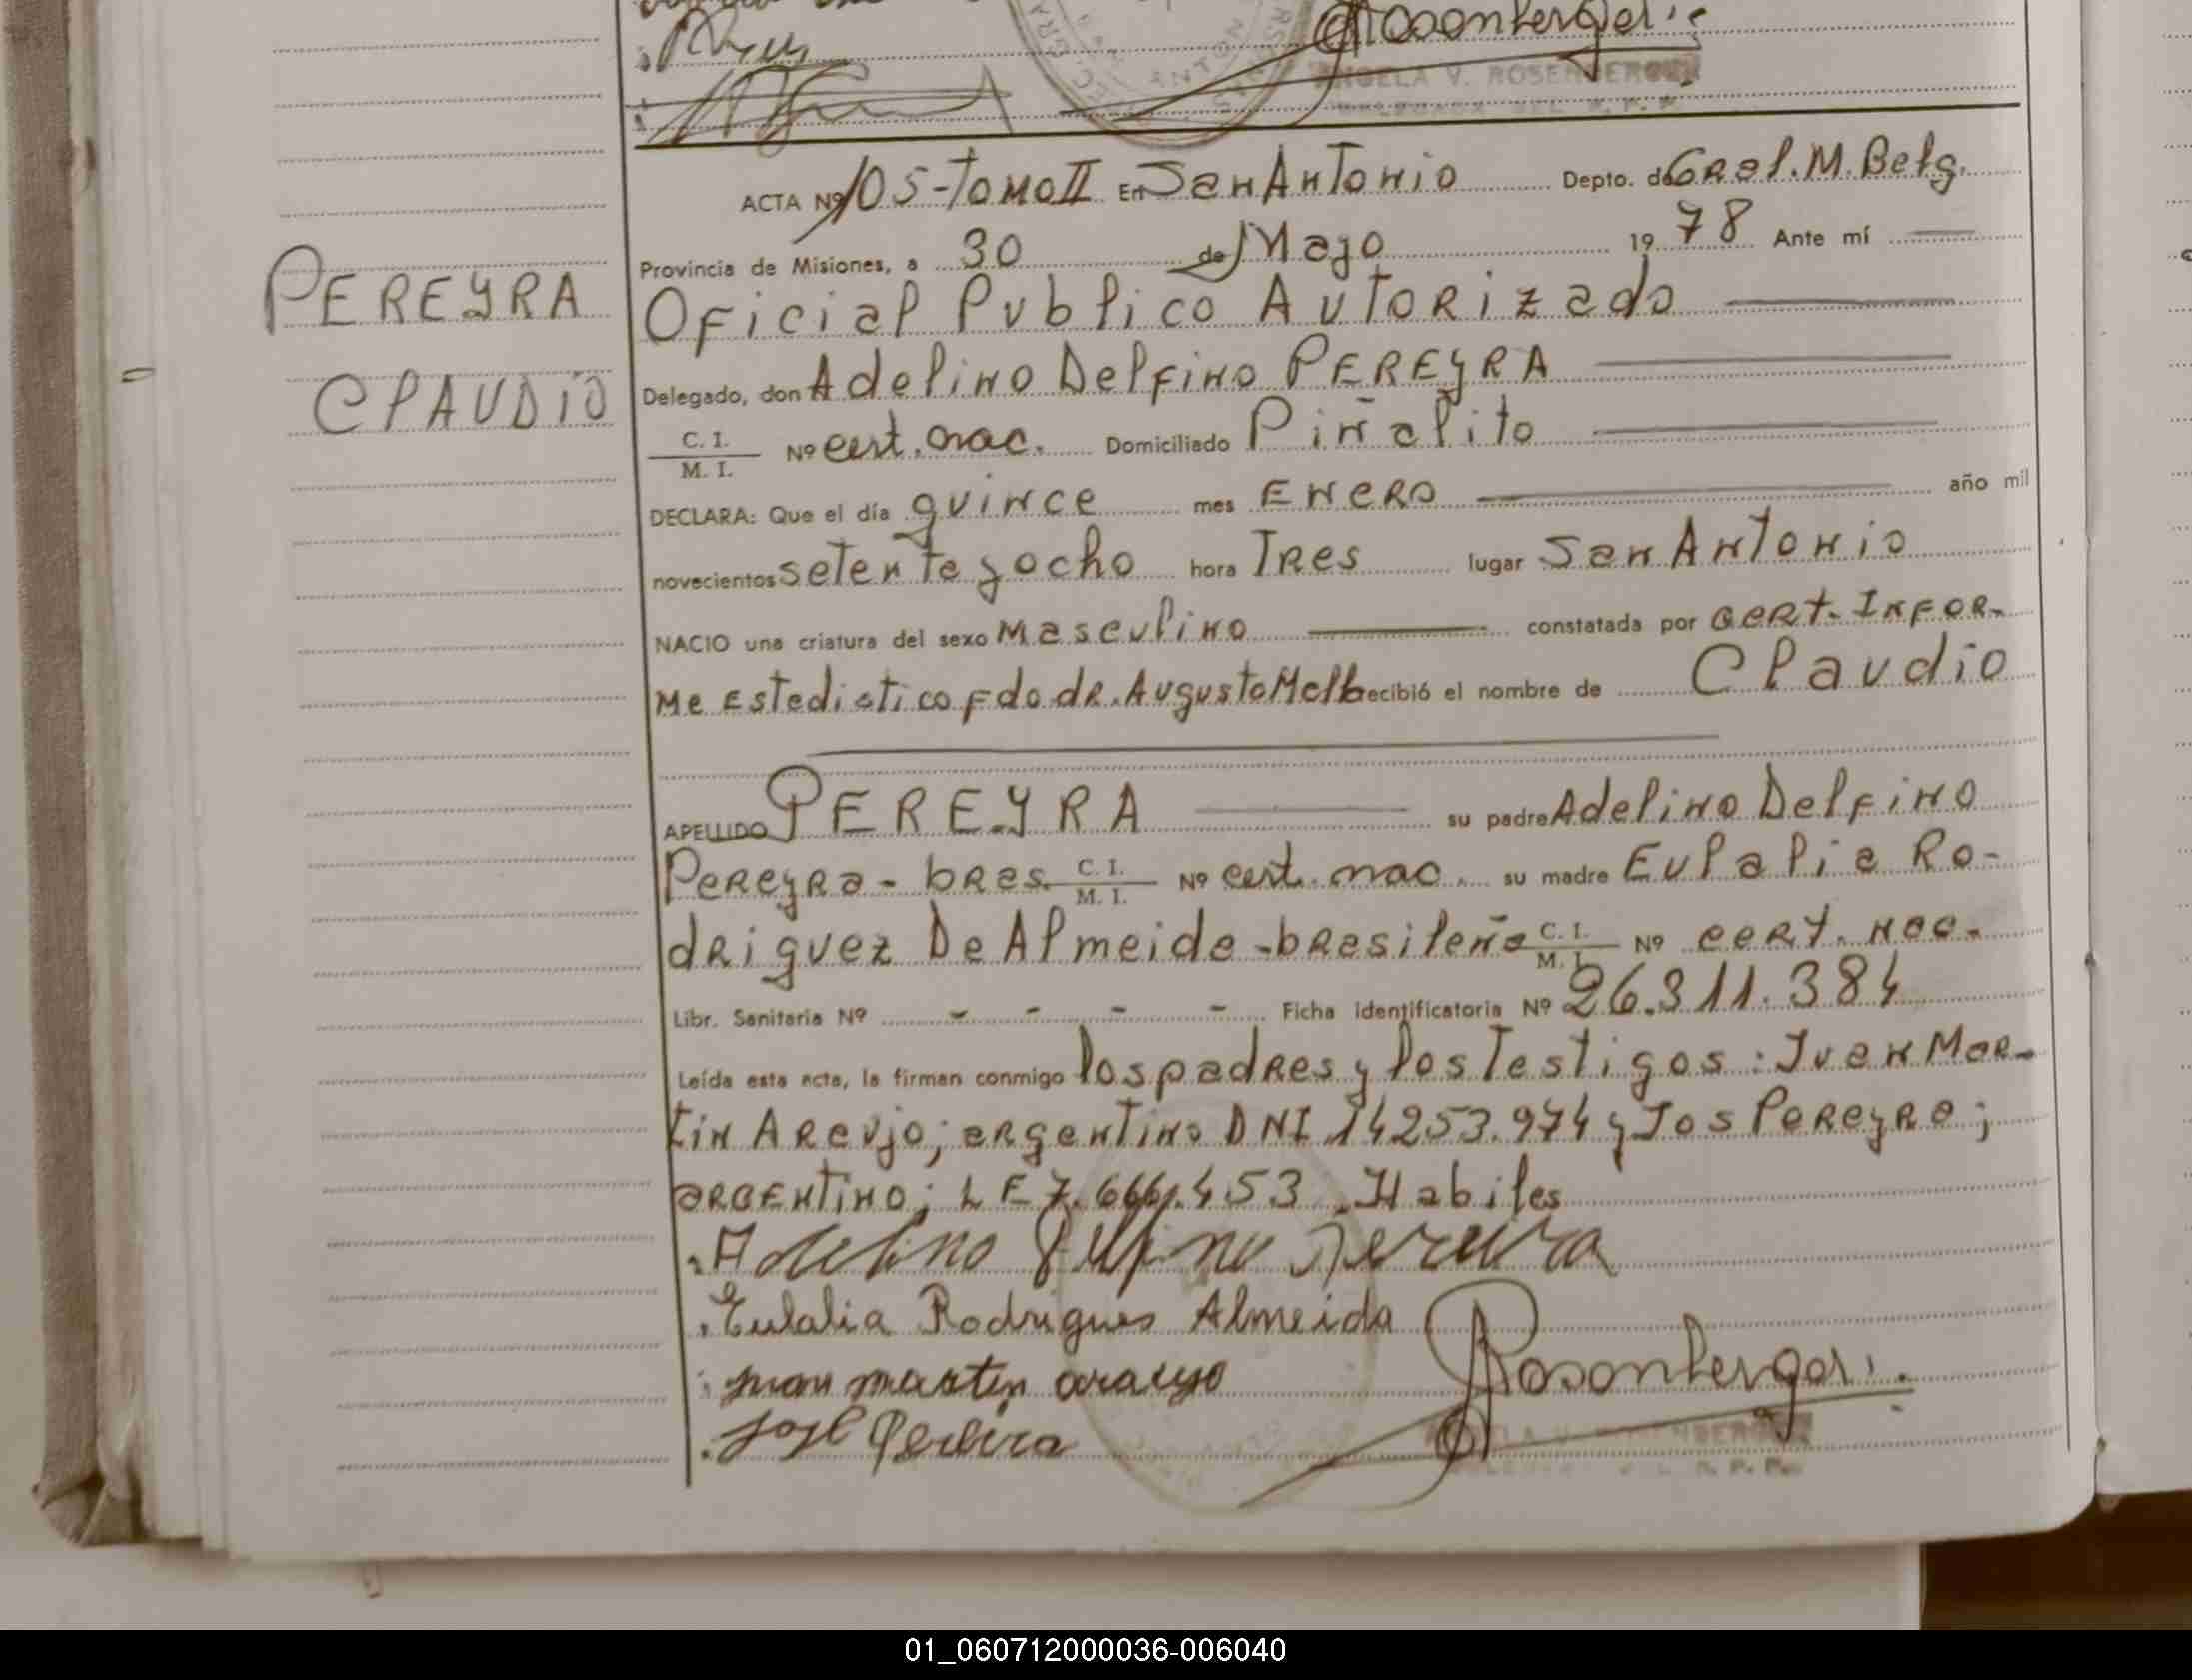 Rosenberger
ANGELA V. ROSENBERGER
ACTA Nº 105-Tomo II En San Antonio Depto. de Gral. M. Belg.
Provincia de Misiones, a 30 de Mayo 1978 Ante mí
PEREYRA
Oficial Publico Autorizado
CLAUDIO
Delegado, don Adelino Delfino PEREYRA
C. I. / M. I. Nº cert. nac. Domiciliado Piñalito
DECLARA: Que el día quince mes Enero año mil
novecientos setenta y ocho hora Tres lugar San Antonio
NACIO una criatura del sexo Masculino constatada por cert. Infor-
me Estedistico Fdo. dr. Augusto recibió el nombre de Claudio
APELLIDO PEREYRA su padre Adelino Delfino
Pereyra - bras. C. I. / M. I. Nº cert. nac. su madre Eulalia Ro-
driguez De Almeida - brasileña C. I. / M. I. Nº cert. nac.
Libr. Sanitaria Nº - - - - Ficha identificatoria Nº 26.311.384
Leída esta acta, la firman conmigo los padres y los Testigos: Juan Mar-
tin Araujo; argentino DNI 14253.974 y Jos Pereyra;
argentino; L E 453. Habiles
Adelino Delfino Pereira
Eulalia Rodrigues Almeida
juan martin araujo
Rosenberger
José Pereira
01_060712000036-006040